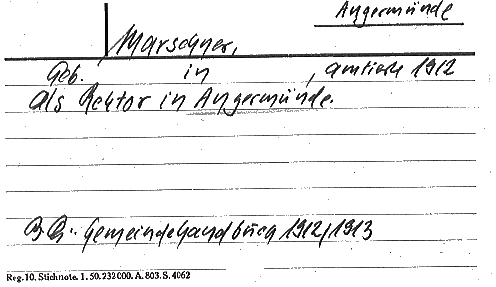 Angermünde
Marschner,
Geb. in , amtierte 1912
als Rektor in Angermünde.
Gemeindehandbuch 1912/1913
Reg.10. Stichnote. 1. 50. 232000. A. 803. S. 4062